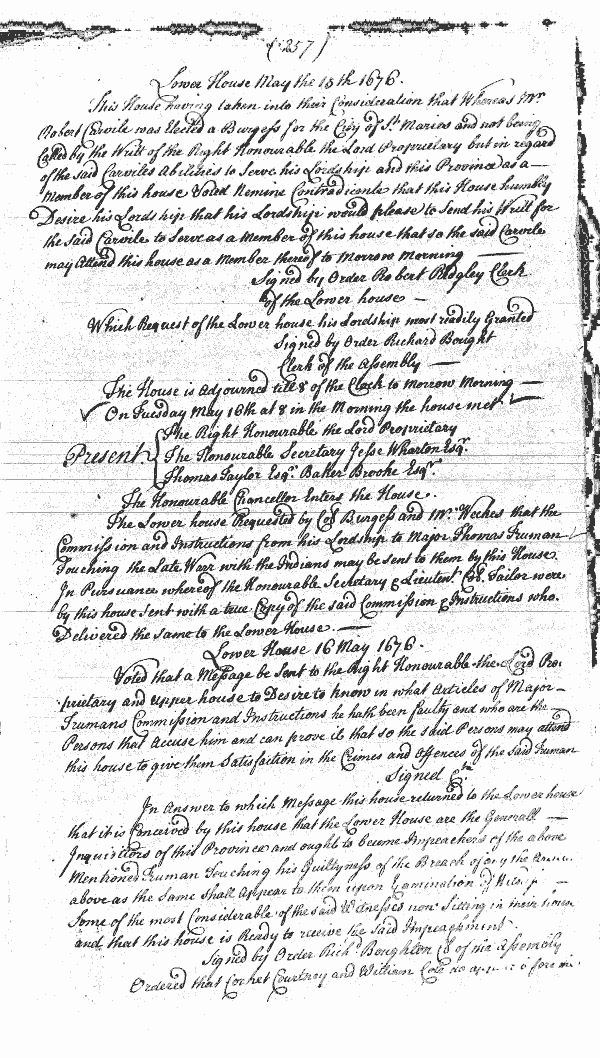 (257)
Lower House May the 15th 1676.
This House having taken into their Consideration that Whereas Mr
Robert Carvile was Elected a Burgess for the City of St. Maries and not being
Called by the Writt of the Right Honourable the Lord Proprietary but in regard
of the said Carviles Abilities to Serve his Lordship and this Province as a
Member of this house Voted Nemine Contradicente that this House humbly
Desire his Lordship that his Lordship would please to Send his Writt for
the Said Carvile to Serve as a Member of this house that so the said Carvile
may Attend this house as a Member thereof to Morrow Morning
Signed by Order Robert Ridgley Clerk
of the Lower house
Which Request of the Lower house his Lordship most readily Granted
Signed by Order Richard Bought
Clerk of the Assembly
The House is Adjourned till 8 of the Clock to Morrow Morning
On Tuesday May 16th at 8 in the Morning the house met
Present
The Right Honourable the Lord Proprietary
The Honourable Secretary Jesse Wharton Esqr.
Thomas Taylor Esqr. Baker Brooke Esqr
The Honourable Chancellor Enters the House.
The Lower house Requested by Col Burgess and Mr. Weekes that the
Commission and Instructions from his Lordship to Major Thomas Truman
Touching the Late Warr with the Indians may be sent to them by this House
In Pursuance whereof the Honourable Secretary & Lieutent Col. Tailor were
by this house Sent with a true Copy of the said Commission & Instructions who.
Delivered the same to the Lower House.
Lower House 16 May 1676.
Voted that a Message be Sent to the Right Honourable the Lord Pro:
prietary and upper house to Desire to know in what Articles of Major
Trumans Commission and Instructions he hath been faulty and who are the
Persons that Accuse him and can prove it that so the said Persons may attend
this house to give them Satisfaction in the Crimes and Offences of the Said Truman
Signed &c.
In Answer to which Message this house returned to the Lower house
that it is Conceived by this house that the Lower House are the Generall
Inquisitors of this Province and ought to become Impeachers of the above
Mentioned Truman Touching his Guiltyness of the Breach of any the
above as the Same Shall Appear to them upon Examination of
Some of the most Considerable of the said Witnesses now Sitting in their house
and that this house is Ready to receive the Said Impeachment.
Signed by Order Richd. Boughton of the Assembly
Ordered that Cornet Courtney and William Cole do